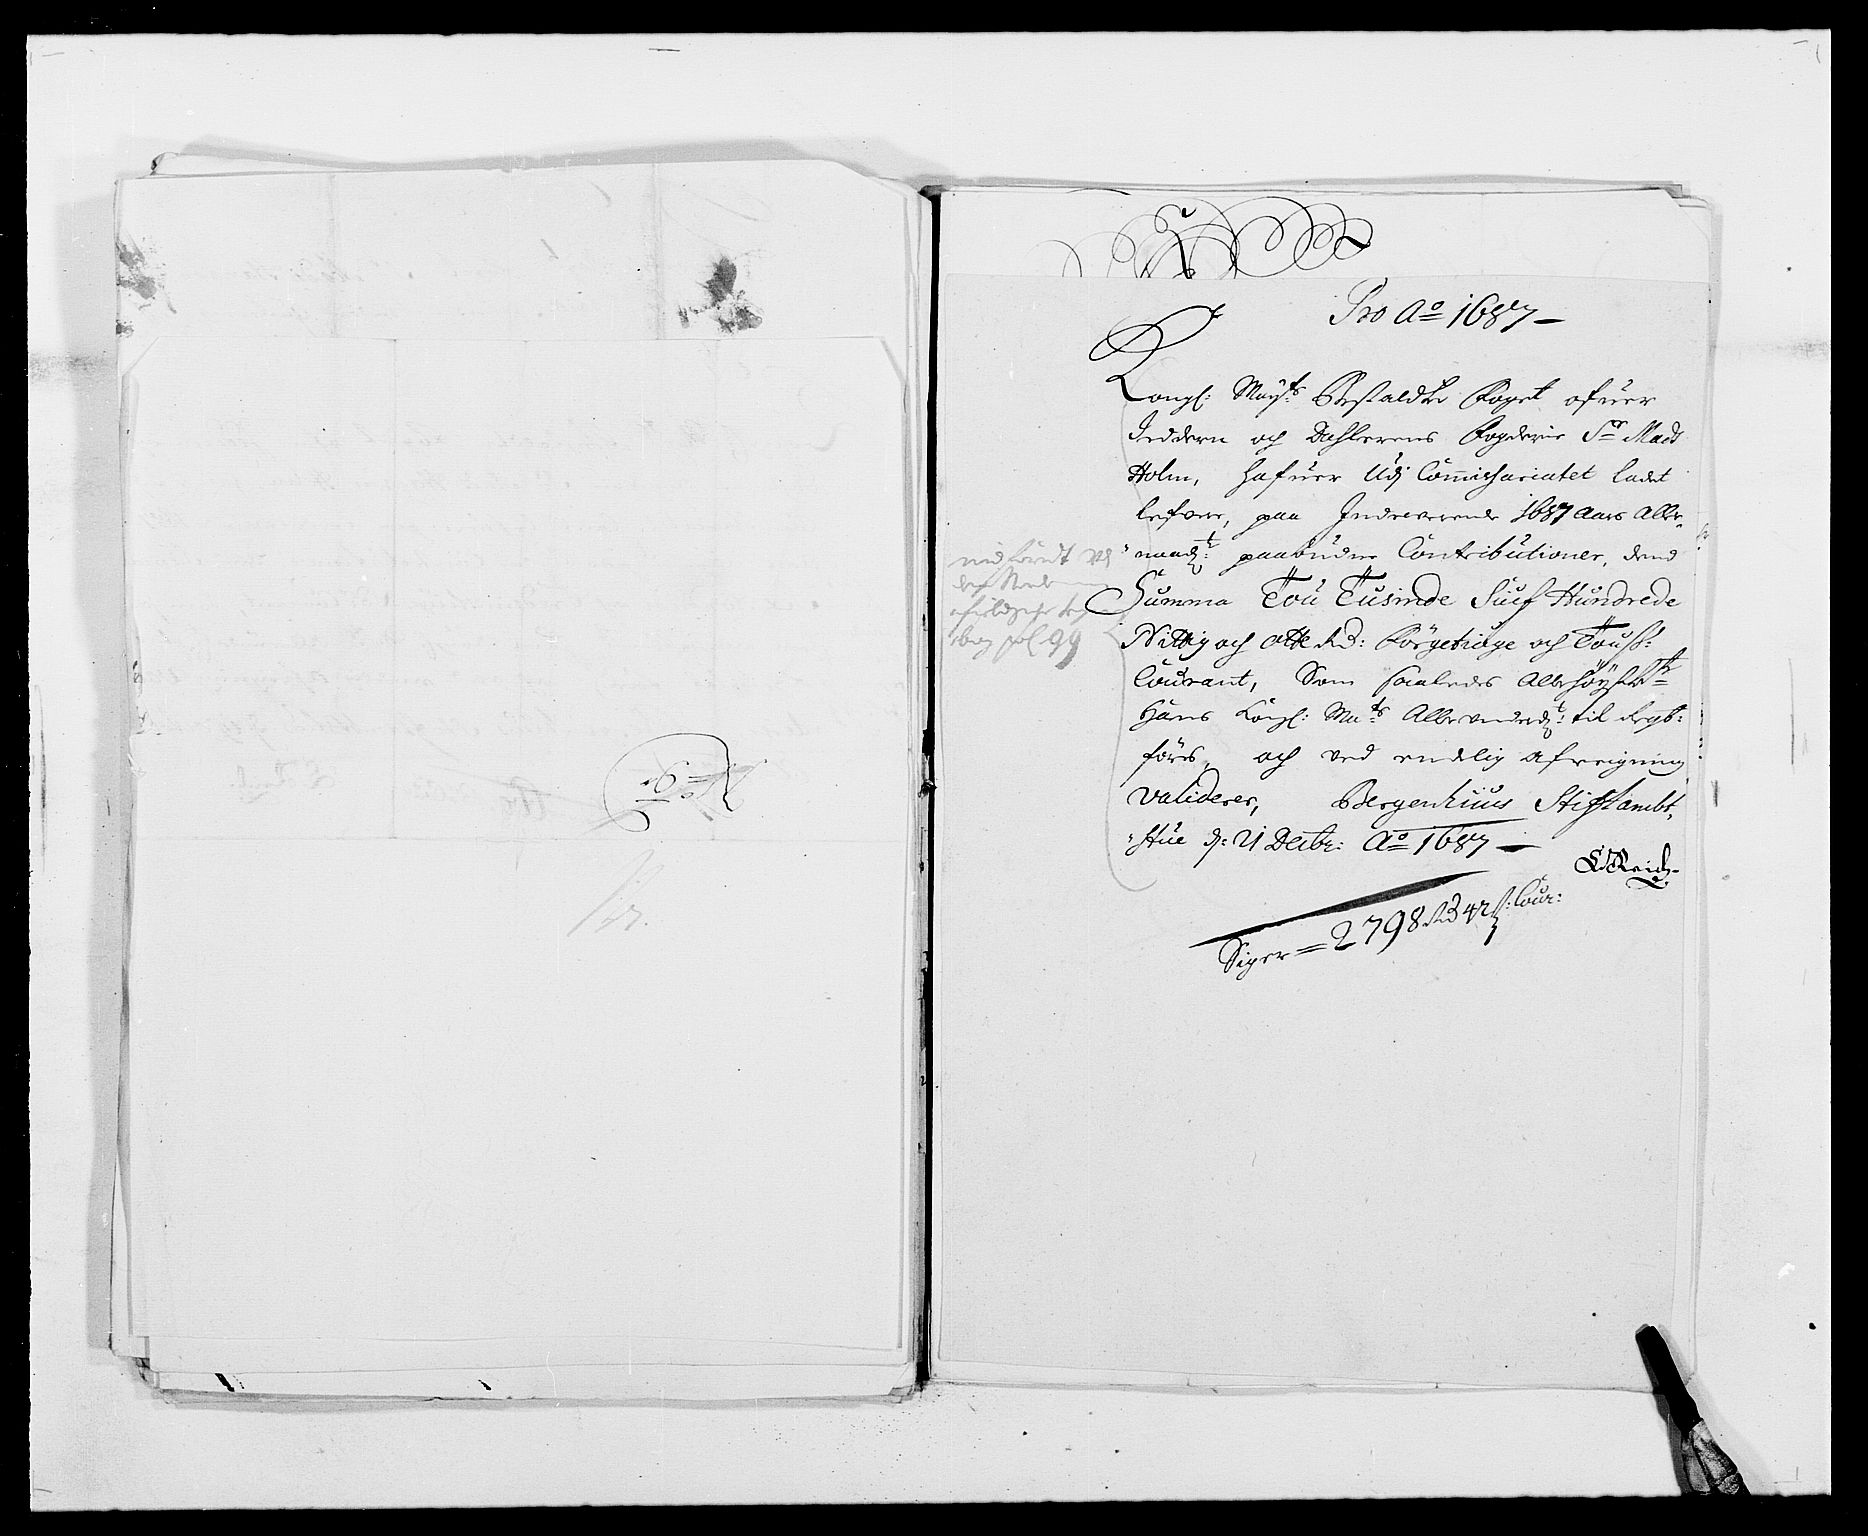 No 6.
Pro Ao 1687
Kongl: Mayts Bestaldte Foget ofuer
Jedderen och Dahlernes Fogderie Sr Mads
Holm, hafuer Udj Commissariatet ladet
lefvere, paa Inderverende 1687 Aars Aller
naadt: paabudne Contributioner, dend
Summa Tou Tusinde Siuf Hundrede
Nittig och otte Rd: Förgetiuge och Tou ß:
Courant, Som saaledes Allerhöystbte
Hans Kongl: Mats Allerunderdt: til Regt:
föris, och ved endelig Afreigning
validerer, Bergenhuus Stiftambt,
Stue d: 21 Decbr: Ao 1687
Siger = 2798 Rd 42 ß: Cour: